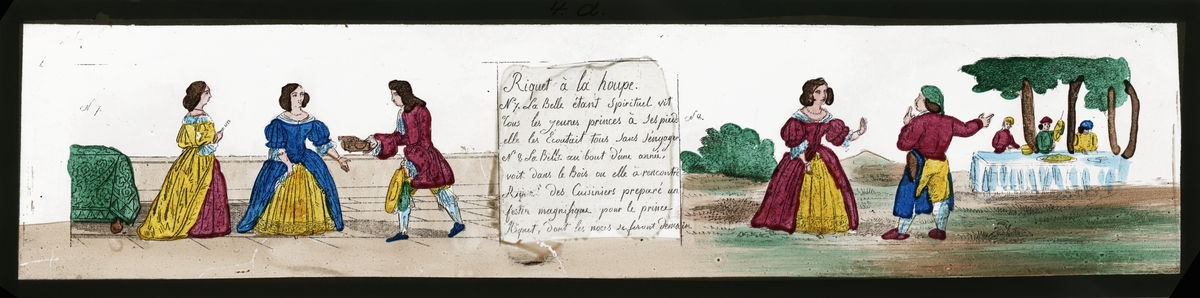 4 a
N 7.
Riquet à la houpe.
N 7. La Belle étant Spirituel vit
tous les yeunes princes à ses pieds
elle les Ecoutait tous sans s'engager
N 8 La Belle au bout d'une année,
voit dans le Bois ou elle à rencontré
des Cuisiniers preparé un
festin magnifique pour le prince
Riquet, dont les noces se feront demain
N 8.